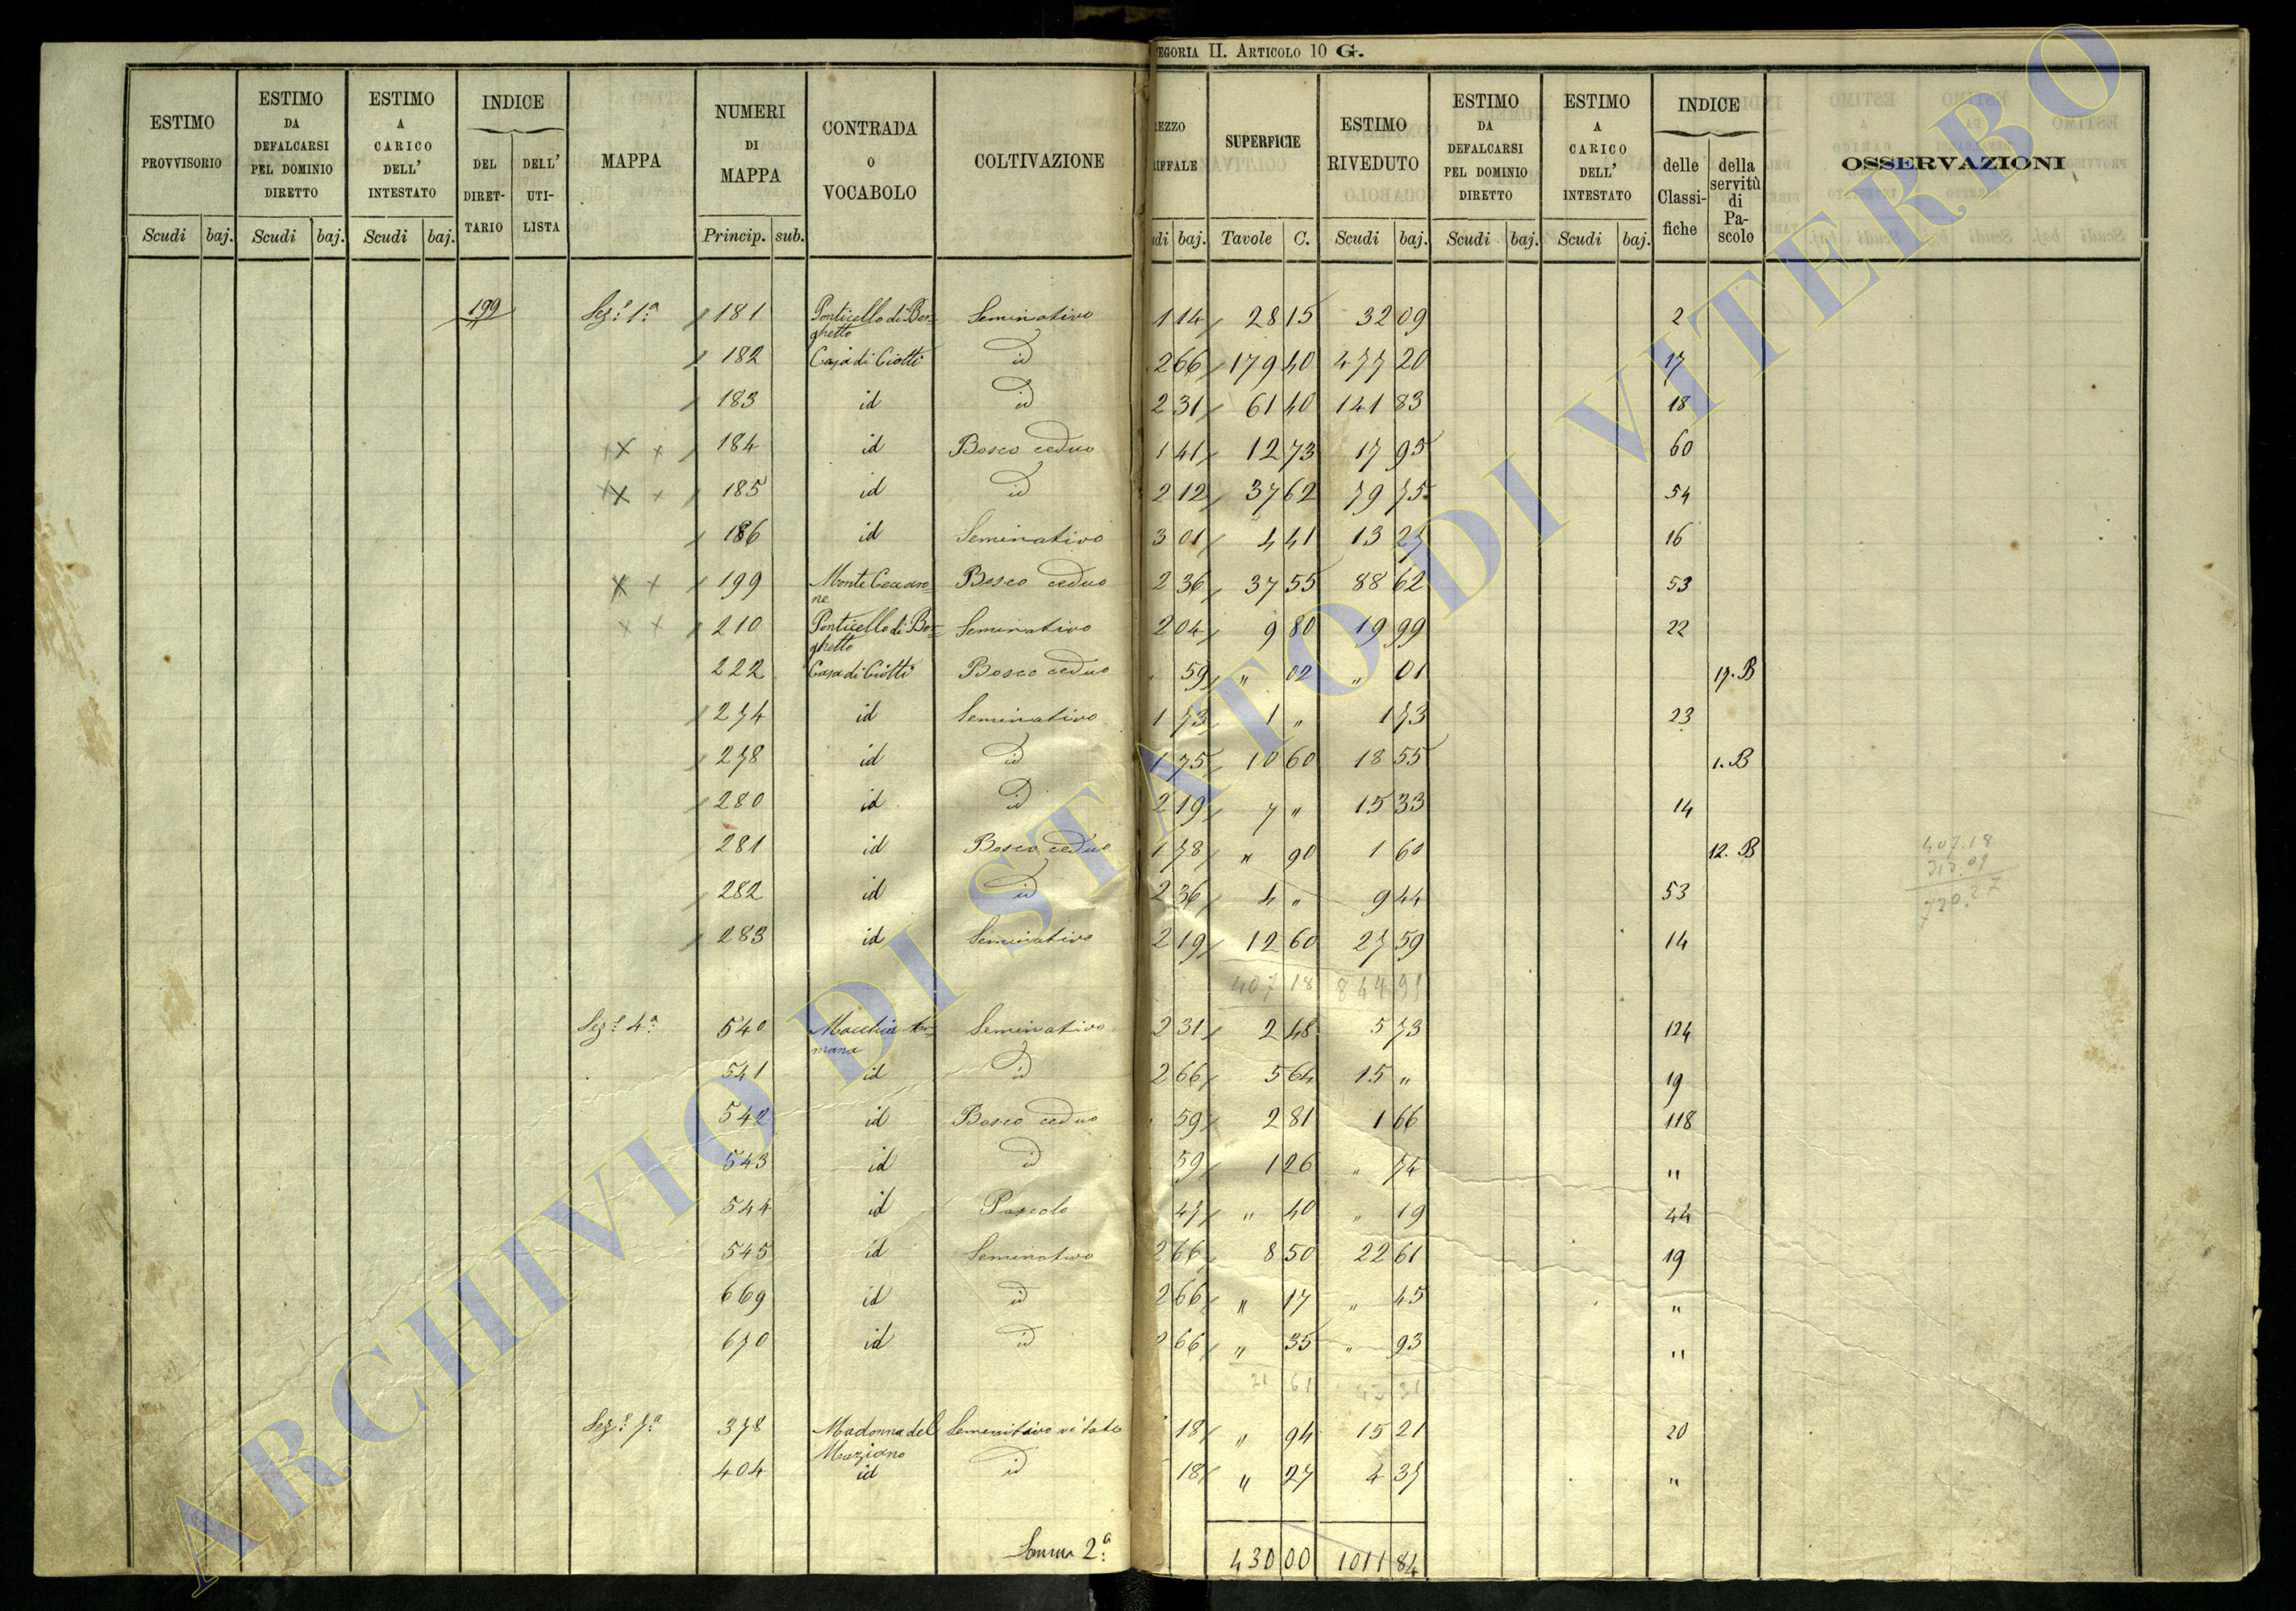 EGORIA II. ARTICOLO 10 G.
ESTIMO PROVVISORIO Scudi baj.
ESTIMO DA DEFALCARSI PEL DOMINIO DIRETTO Scudi baj.
ESTIMO A CARICO DELL' INTESTATO Scudi baj.
INDICE DEL DIRET- TARIO DELL' UTI- LISTA
MAPPA
NUMERI DI MAPPA Princip. sub.
CONTRADA O VOCABOLO
COLTIVAZIONE
REZZO RIFFALE udi baj.
SUPERFICIE Tavole C.
ESTIMO RIVEDUTO Scudi baj.
ESTIMO DA DEFALCARSI PEL DOMINIO DIRETTO Scudi baj.
ESTIMO A CARICO DELL' INTESTATO Scudi baj.
INDICE delle Classi- fiche della servitù di Pa- scolo
OSSERVAZIONI
199 Sez.e 1.a 181 Ponticello di Bor= Seminativo 1 14 28 15 32 09 2
ghetto
182 Casa di Ciotti id 2 66 179 40 477 20 17
183 id id 2 31 61 40 141 83 18
184 id Bosco ceduo 1 41 12 73 17 95 60
185 id id 2 12 37 62 79 75 54
186 id Seminativo 3 01 4 41 13 27 16
199 Monte Ceccaro= Bosco ceduo 2 36 37 55 88 62 53
ne
210 Ponticello di Bo= Seminativo 2 04 9 80 19 99 22
ghetto
222 Casa di Ciotti Bosco ceduo 59 " 02 " 01 17. B
274 id Seminativo 1 73 1 " 1 73 23
278 id id 1 75 10 60 18 55 1. B
280 id id 2 19 7 " 15 33 14
281 id Bosco ceduo 1 78 " 90 1 60 12. B 407.18
313.09
282 id id 2 36 4 " 9 44 53 720.27
283 id Seminativo 2 19 12 60 27 59 14
407 18 844 95
Sez.e 4.a 540 Macchia Ar= Seminativo 2 31 2 48 5 73 124
mana
541 id id 2 66 5 64 15 " 19
542 id Bosco ceduo 59 2 81 1 66 118
543 id id 59 1 26 " 74 "
544 id Pascolo 47 " 40 " 19 44
545 id Seminativo 2 66 8 50 22 61 19
669 id id 2 66 " 17 " 45 "
670 id id 2 66 " 35 " 93 "
21 61 31
Sez.e 7.a 378 Madonna del Seminativo vitato 18 " 94 15 21 20
404 id id 18 " 27 4 37 "
Somma 2.a 430 00 1011 84
ARCHIVIO DI STATO DI VITERBO